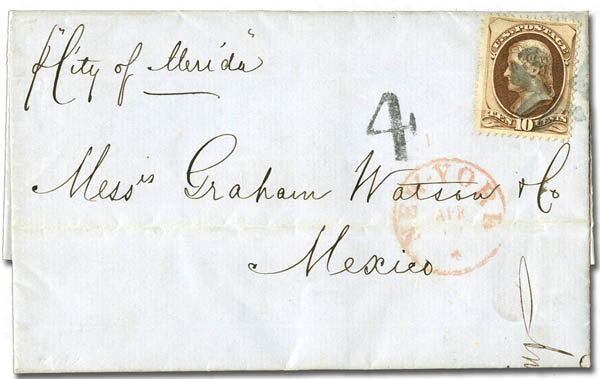 p "City of Merida"
U.S. POSTAGE
TEN 10 CENTS
4
Mess^rs Graham Watson & Co
NEW-YORK
APR
Mexico